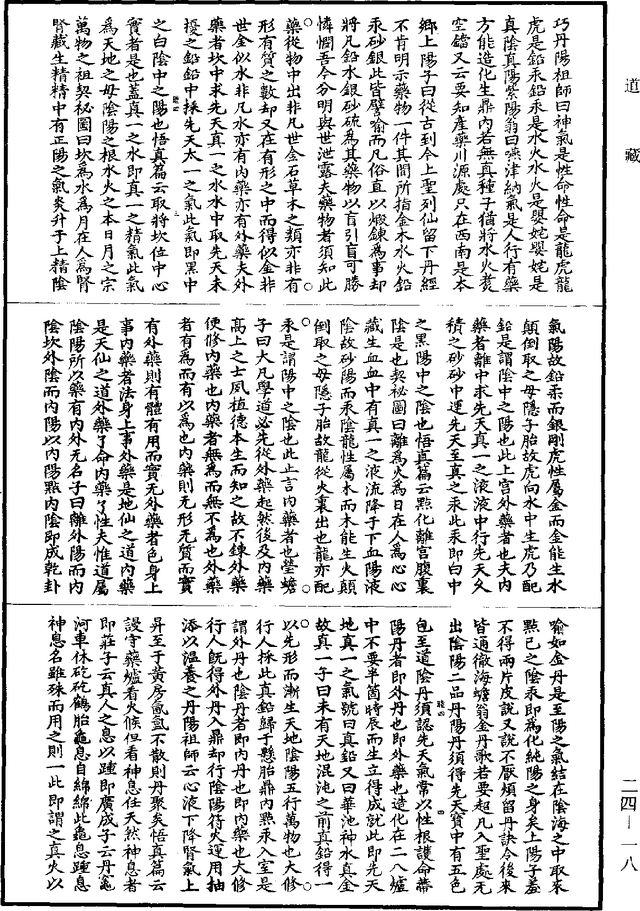 道藏
巧丹陽祖師曰神氣是性命性命是龍虎龍
虎是鉛汞鉛汞是水火水火是嬰姹嬰姹是
真陰真陽紫陽翁曰嚥津納氣是人行有藥
方能造化生鼎內若無真種子猶將水火煑
空鐺又云要知產藥川源處只在西南是本
鄉上陽子曰從古到今上聖列仙留下丹經
不肯明示藥物一件其間所指金木水火鉛
汞砂銀此皆譬喻而凡俗直以煅鍊為事却
將凡鉛水銀砂硫為其藥物以盲引盲可勝
憐憫吾今分明與世泄露夫藥物者須知此
藥從物中出非凡世金石草木之類亦非有
形有質之數却又在有形之中而得似金非
世金似水非凡水亦有內藥亦有外藥夫外
藥者坎中求先天真一之水水中取先天未
擾之鉛鉛中採先天太一之氣此氣即黑中
之白陰中之陽也悟真篇云取將坎位中心
實者是也蓋真一之水即真一之精氣此氣
為天地之母陰陽之根水火之本日月之宗
萬物之祖契祕圖曰坎為水為月在人為腎
腎藏生精精中有正陽之氣炎升于上精陰
氣陽故鉛柔而銀剛虎性屬金而金能生水
顛倒取之母隱子胎故虎向水中生虎乃配
鉛是謂陰中之陽也此上宮外藥者也夫內
藥者離中求先天真一之液液中行先天久
積之砂砂中運先天至真之汞此汞即白中
之黑陽中之陰也悟真篇云點化離宮腹裏
陰是也契祕圖曰離為火為日在人為心心
藏生血血中有真一之液流降于下血陽液
陰故砂陽而汞陰龍性屬木而木能生火顛
倒取之母隱子胎故龍從火裏出也龍亦配
汞是謂陽中之陰也此止言內藥者也瑩蟾
子曰大凡學道必先從外藥起然後及內藥
高上之士夙植德本生而知之故不鍊外藥
便修內藥也內藥者無為而無不為也外藥
者有為而有以為也內藥則无形无質而實
有外藥則有體有用而實无外藥者色身上
事內藥者法身上事外藥是地仙之道內藥
是天仙之道外藥了命內藥了性夫惟道屬
陰陽所以藥有內外无名子曰離外陽而內
陰坎外陰而內陽以內陽點內陰即成乾卦
喻如金丹是至陽之氣結在陰海之中取來
點己之陰汞即為化純陽之身矣上陽子羞
不得兩片皮說又說不厭煩留丹訣令後來
皆通徹海蟾翁金丹歌若要超凡入聖處无
出陰陽二品丹陽丹須得先天寶中有五色
包至道陰丹須認先天氣常以性根護命蔕
陽丹者即外丹也即外藥也造化在二八爐
中不要半箇時辰而生立得成就此即先天
地真一之氣號曰真鉛又曰華池神水真金
故真一子曰未有天地混沌之前真鉛得一
以先形而漸生天地陰陽五行萬物也大修
行人採此真鉛歸于懸胎鼎內點汞入室是
謂外丹也陰丹者即內丹也即內藥也大修
行人既得外丹入鼎却行陰陽符火運用抽
添以溫養之丹陽祖師云心液下降腎氣上
昇至于黃房氤氳不散則丹聚矣悟真篇云
謾守藥爐看火候但看神息任天然神息者
即莊子云真人之息以踵即廣成子云丹竈
河車休矻矻鶴胎龜息自綿綿此龜息踵息
神息名雖殊而用之則一此即謂之真火以
二四—一八